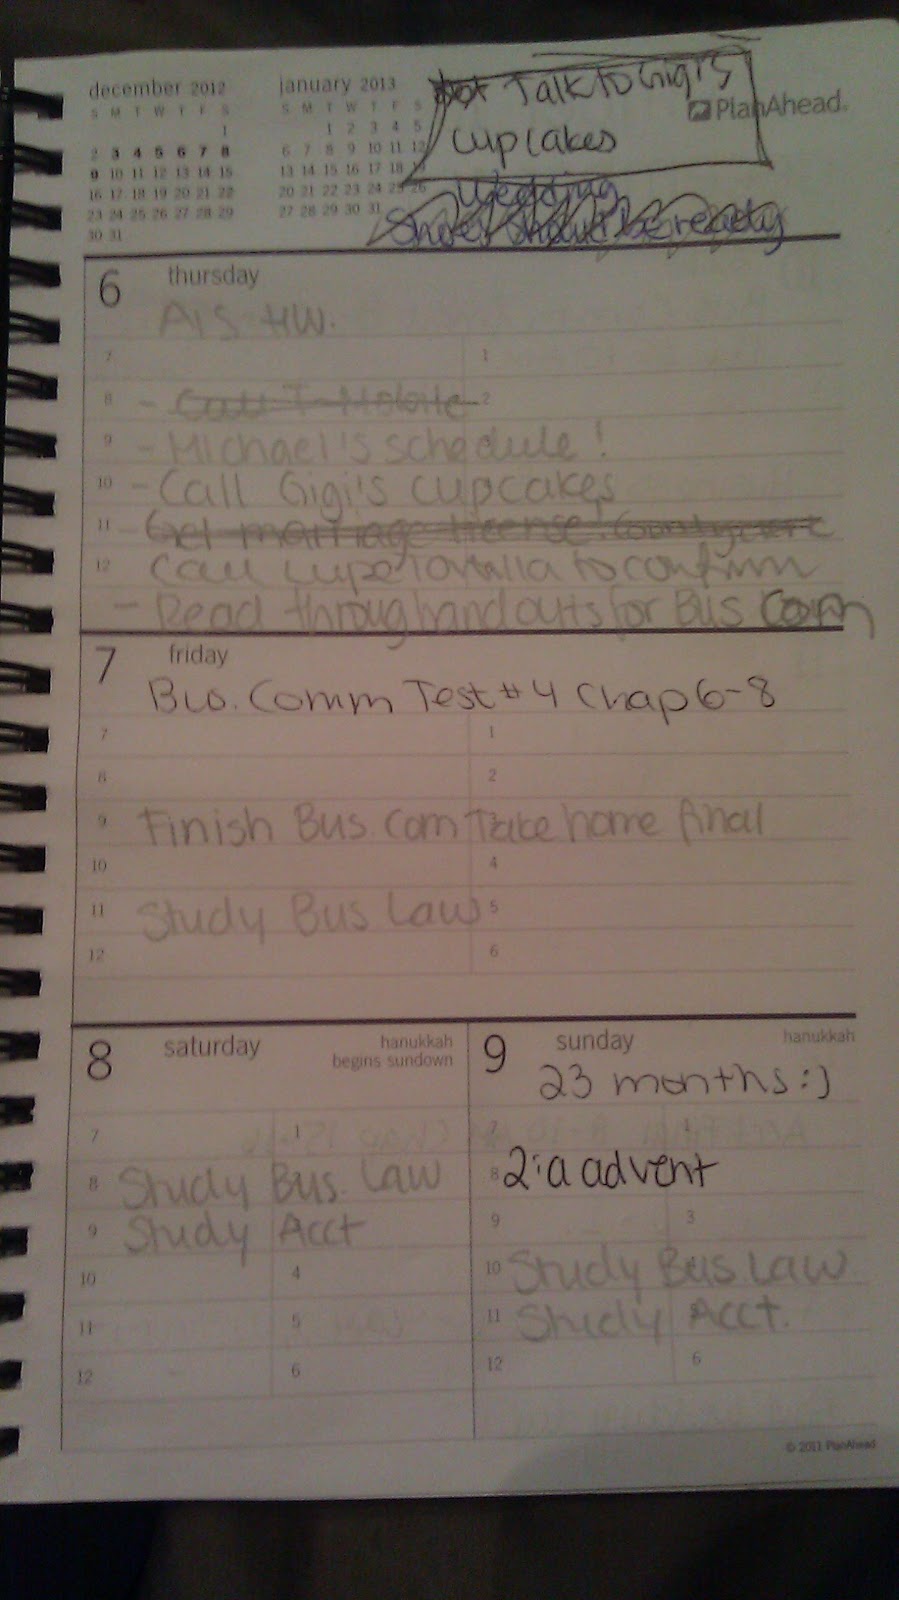 december 2012
S M T W T F S
1
2 3 4 5 6 7 8
9 10 11 12 13 14 15
16 17 18 19 20 21 22
23 24 25 26 27 28 29
30 31
january 2013
S M T W T F S
1 2 3 4 5
6 7 8 9 10 11 12
13 14 15 16 17 18
20 21 22 23 24 25 26
27 28 29 30 31
Talk to Gigi's
cupcakes
PlanAhead®
Wedding
Shoes should be ready
6 thursday
AIS HW.
7 1
8 - Call T-Mobile 2
9 - Michael's schedule!
10 - Call Gigi's cupcakes
11 - Get marriage license! County
12 Call Lupe to confirm
- Read through handouts for Bus Com
7 friday
Bus. Comm Test #4 Chap 6-8
7 1
8 2
9 Finish Bus. Com Take home final
10 4
11 Study Bus Law 5
12 6
8 saturday hanukkah
begins sundown
7 1
8 Study Bus. Law
9 Study Acct
10 4
11 5
12 6
9 sunday hanukkah
23 months :)
7 1
8 2:a advent
9 3
10 Study Bus Law
11 Study Acct.
12 6
© 2011 PlanAhead